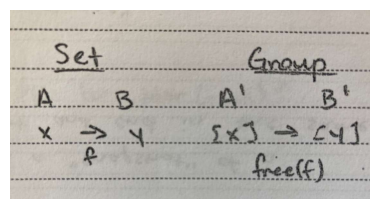 Set Group
A B A' B'
x → y [x] → [y]
f free(f)